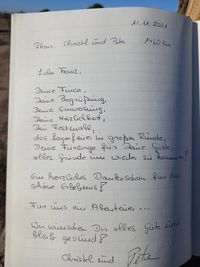 11.11.2021
Christel und Peter
1460 km
Liebe Franz,
Deine Finca,
Deine Begrüßung,
Deine Herzlichkeit,
Dein Festmahl,
das Lagerfeuer in großer Runde,
Deine Fürsorge für Deine Gäste,
alles Gründe um wieder zu kommen!
Ein herzliches Dankeschön für das
schöne Erlebnis!
Für uns ein Abenteuer ...
Wir wünschen Dir alles Gute und
bleib gesund!
Christel und Peter